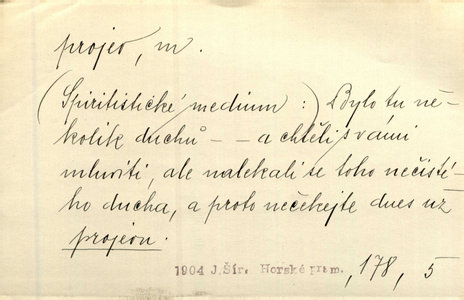 projev, m.
(Spiritistické medium:) Bylo tu ně-
kolik duchů - - a chtěli s vámi
mluviti, ale nalekali se toho nečisté-
ho ducha, a proto nečekejte dnes už
projevu.
1904 J.Šír. Horské pram. ,178, 5